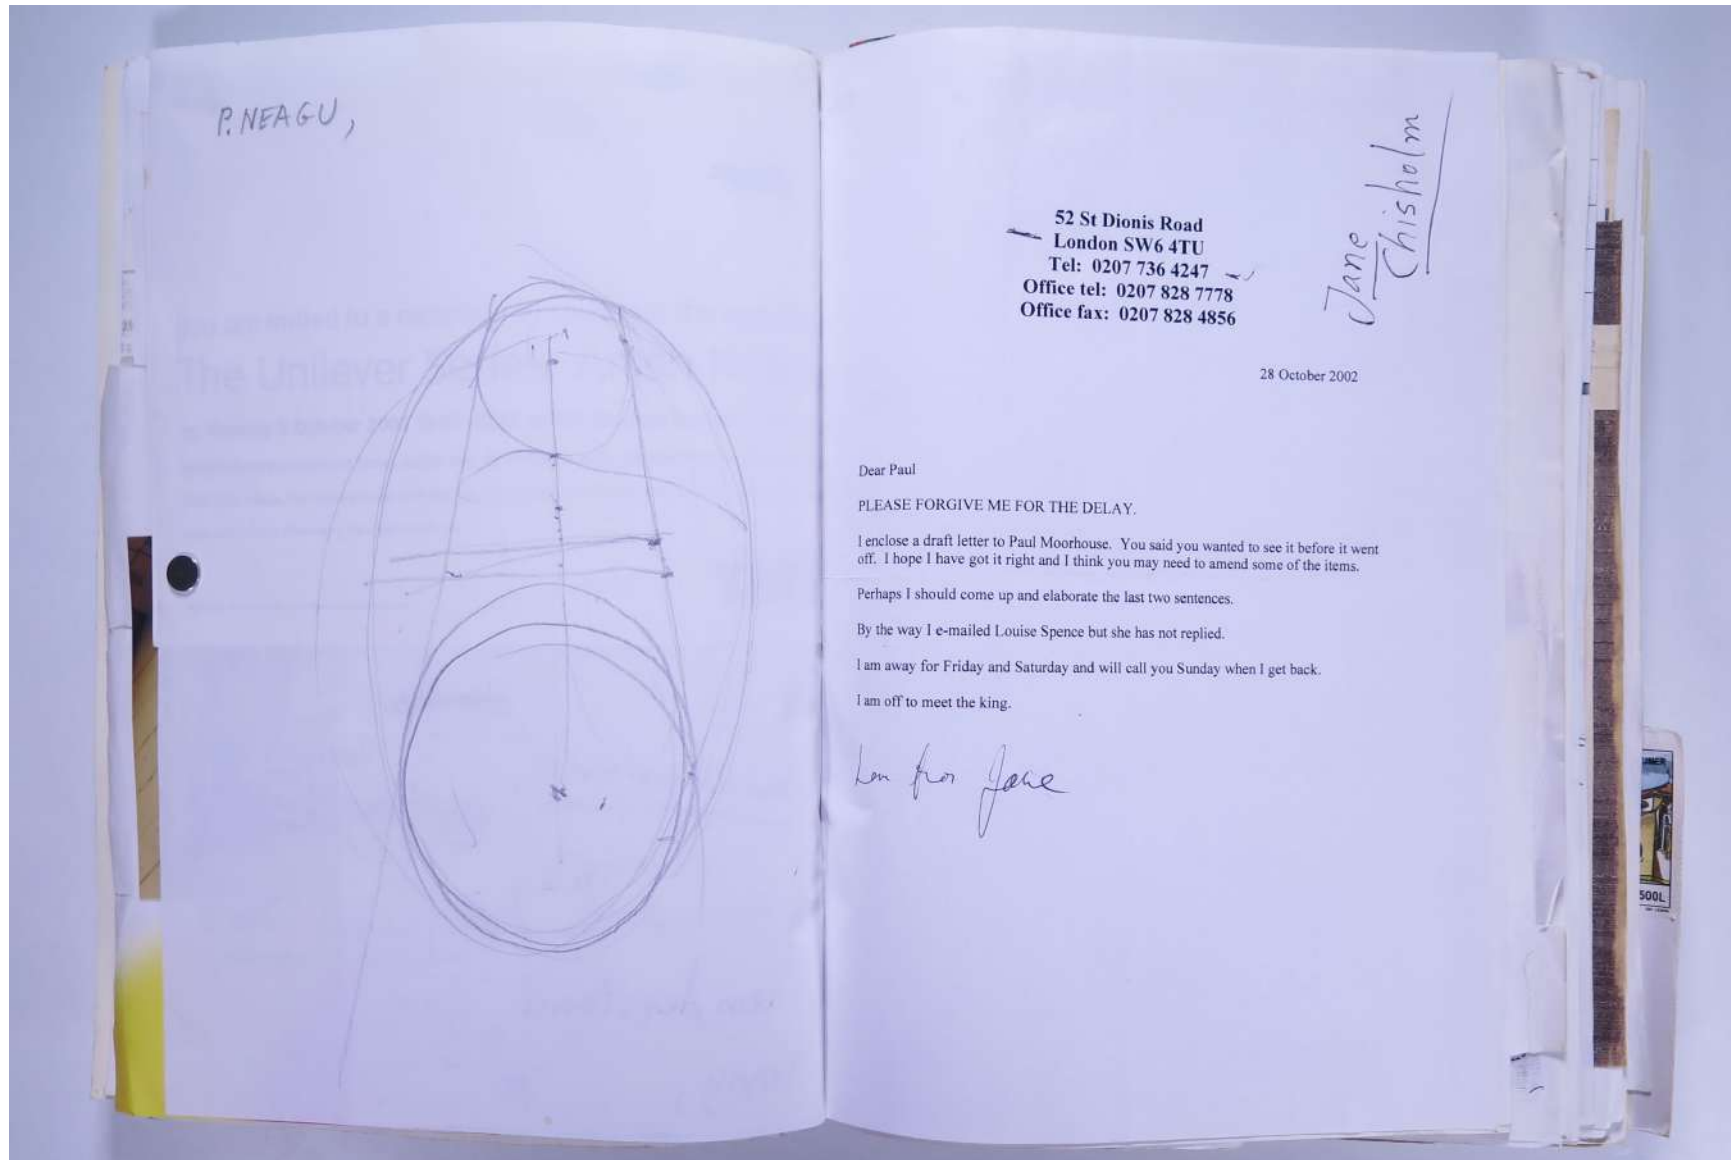 P. NEAGU,
The Unilever
Jane
Chisholm
52 St Dionis Road
London SW6 4TU
Tel: 0207 736 4247
Office tel: 0207 828 7778
Office fax: 0207 828 4856
28 October 2002
Dear Paul
PLEASE FORGIVE ME FOR THE DELAY.
I enclose a draft letter to Paul Moorhouse. You said you wanted to see it before it went
off. I hope I have got it right and I think you may need to amend some of the items.
Perhaps I should come up and elaborate the last two sentences.
By the way I e-mailed Louise Spence but she has not replied.
I am away for Friday and Saturday and will call you Sunday when I get back.
I am off to meet the king.
from Jane
500L